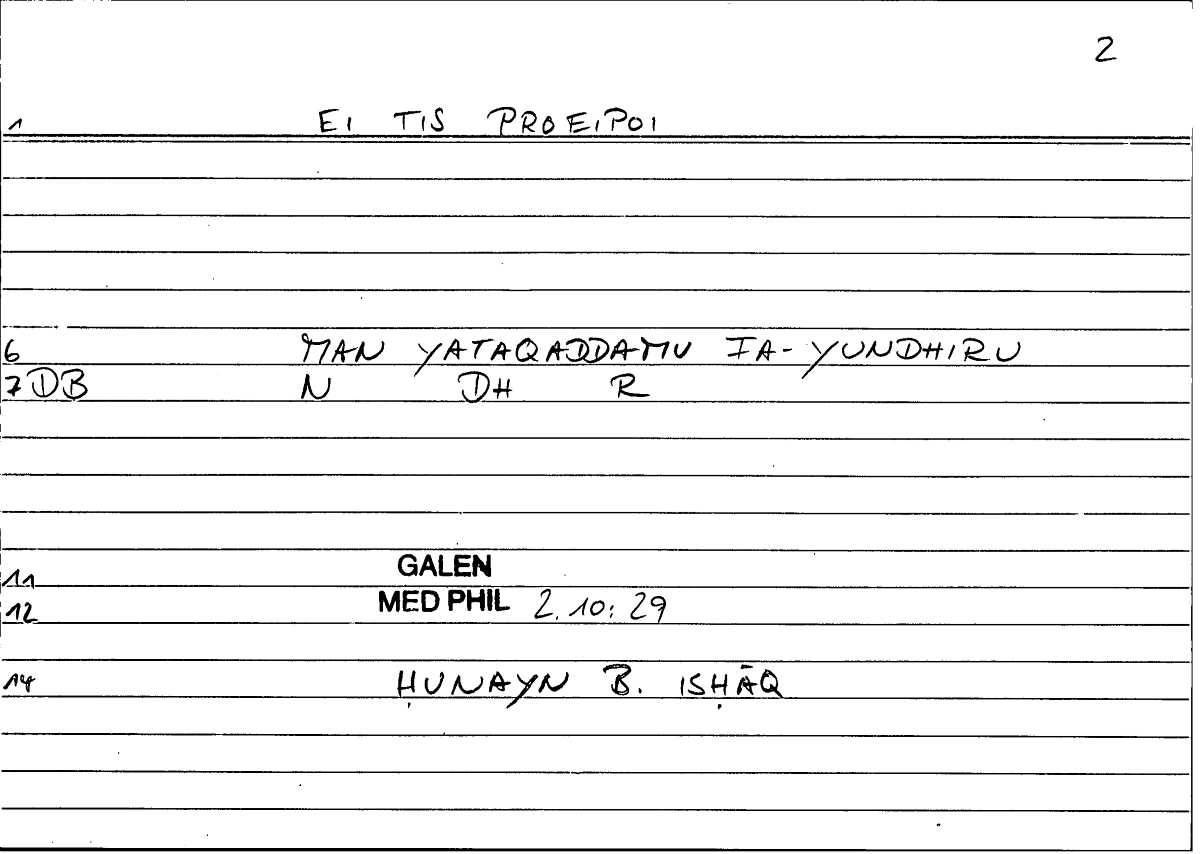 2
1 EI TIS PROEIPOI
6 MAN YATAQADDAMU FA-YUNDHIRU
7DB N DH R
11 GALEN
12 MED PHIL 2.10:29
14 ḤUNAYN B. ISḤĀQ